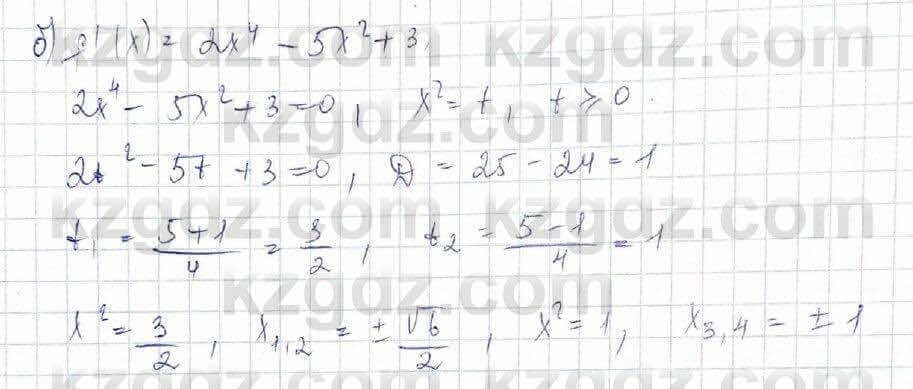 б) g'(x) = 2x⁴ - 5x² + 3,
2x⁴ - 5x² + 3 = 0, x² = t, t ≥ 0.
2t² - 5t + 3 = 0, D = 25 - 24 = 1
t₁ = (5+1)/4 = 3/2, t₂ = (5-1)/4 = 1
x² = 3/2, x₁,₂ = ± √6/2, x² = 1, x₃,₄ = ± 1
kzgdz.com
kzgdz.com
kzgdz.com
kzgdz.com
kzgdz.com
kzgdz.com